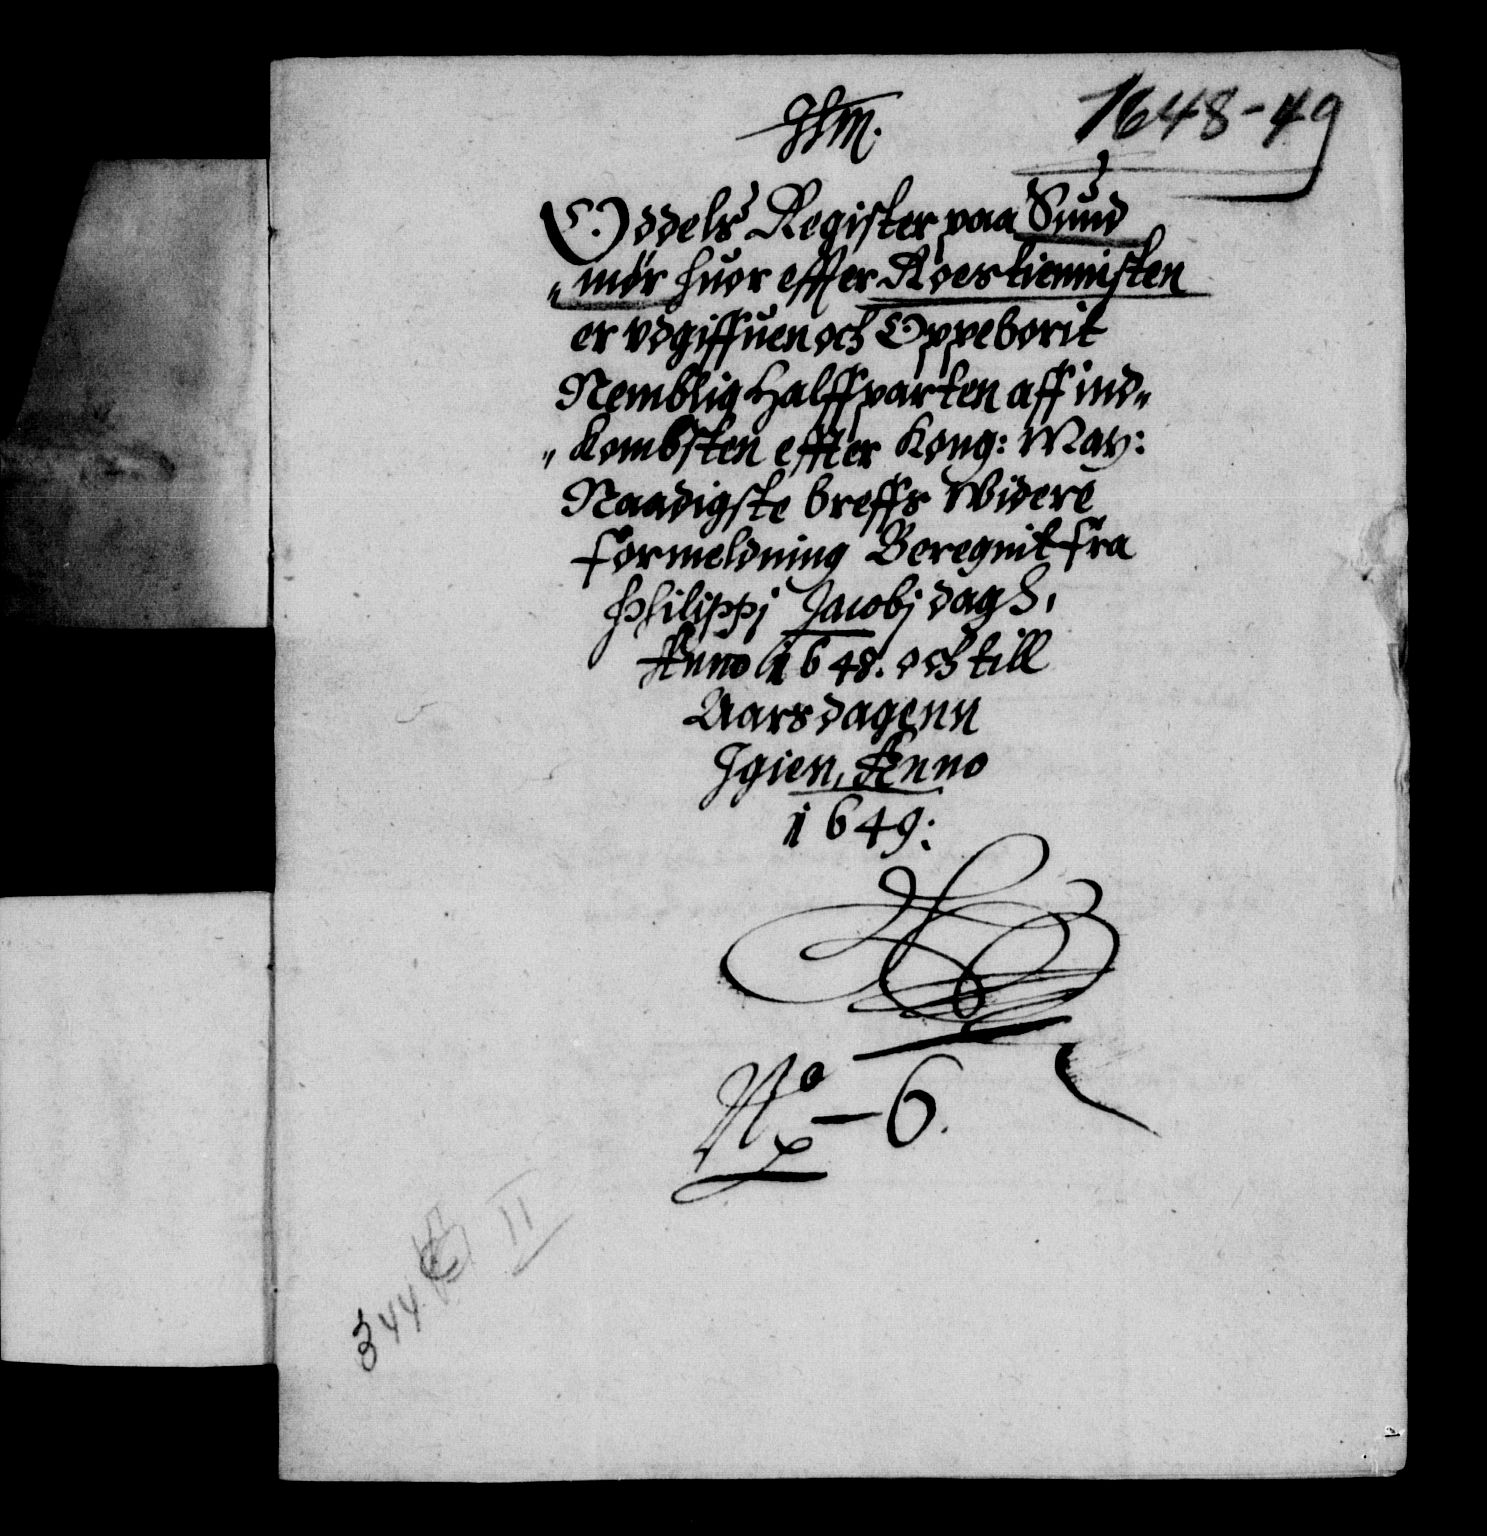 1648-49
Oddels Register paa Sund
„mør huor effter Roestiennisten
er vdgiffuen och Oppeborit
Nemblig Halffparten aff ind„
„kombsten effter Kong: May:
Naadigste breffs Widere
formeldning Beregnit fra
Philippj Jacobj dagh,
Anno 1648. och till
Aarsdagenn
Igien, Anno
1649:
No - 6.
II
344